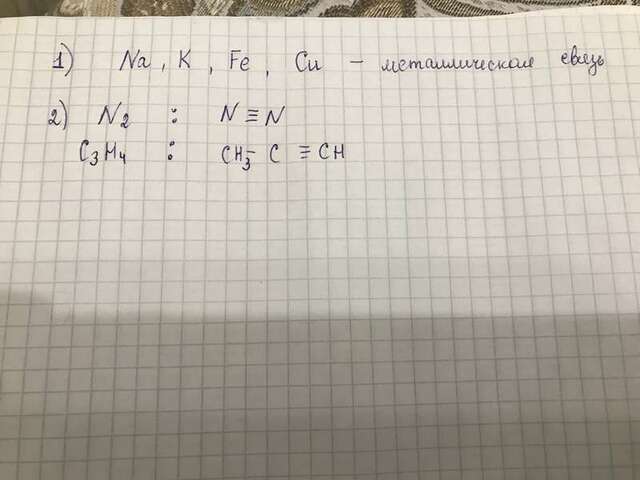 1) Na, K, Fe, Cu – металлическая связь
2) N₂ : N ≡ N
C₃H₄ : CH₃– C ≡ CH